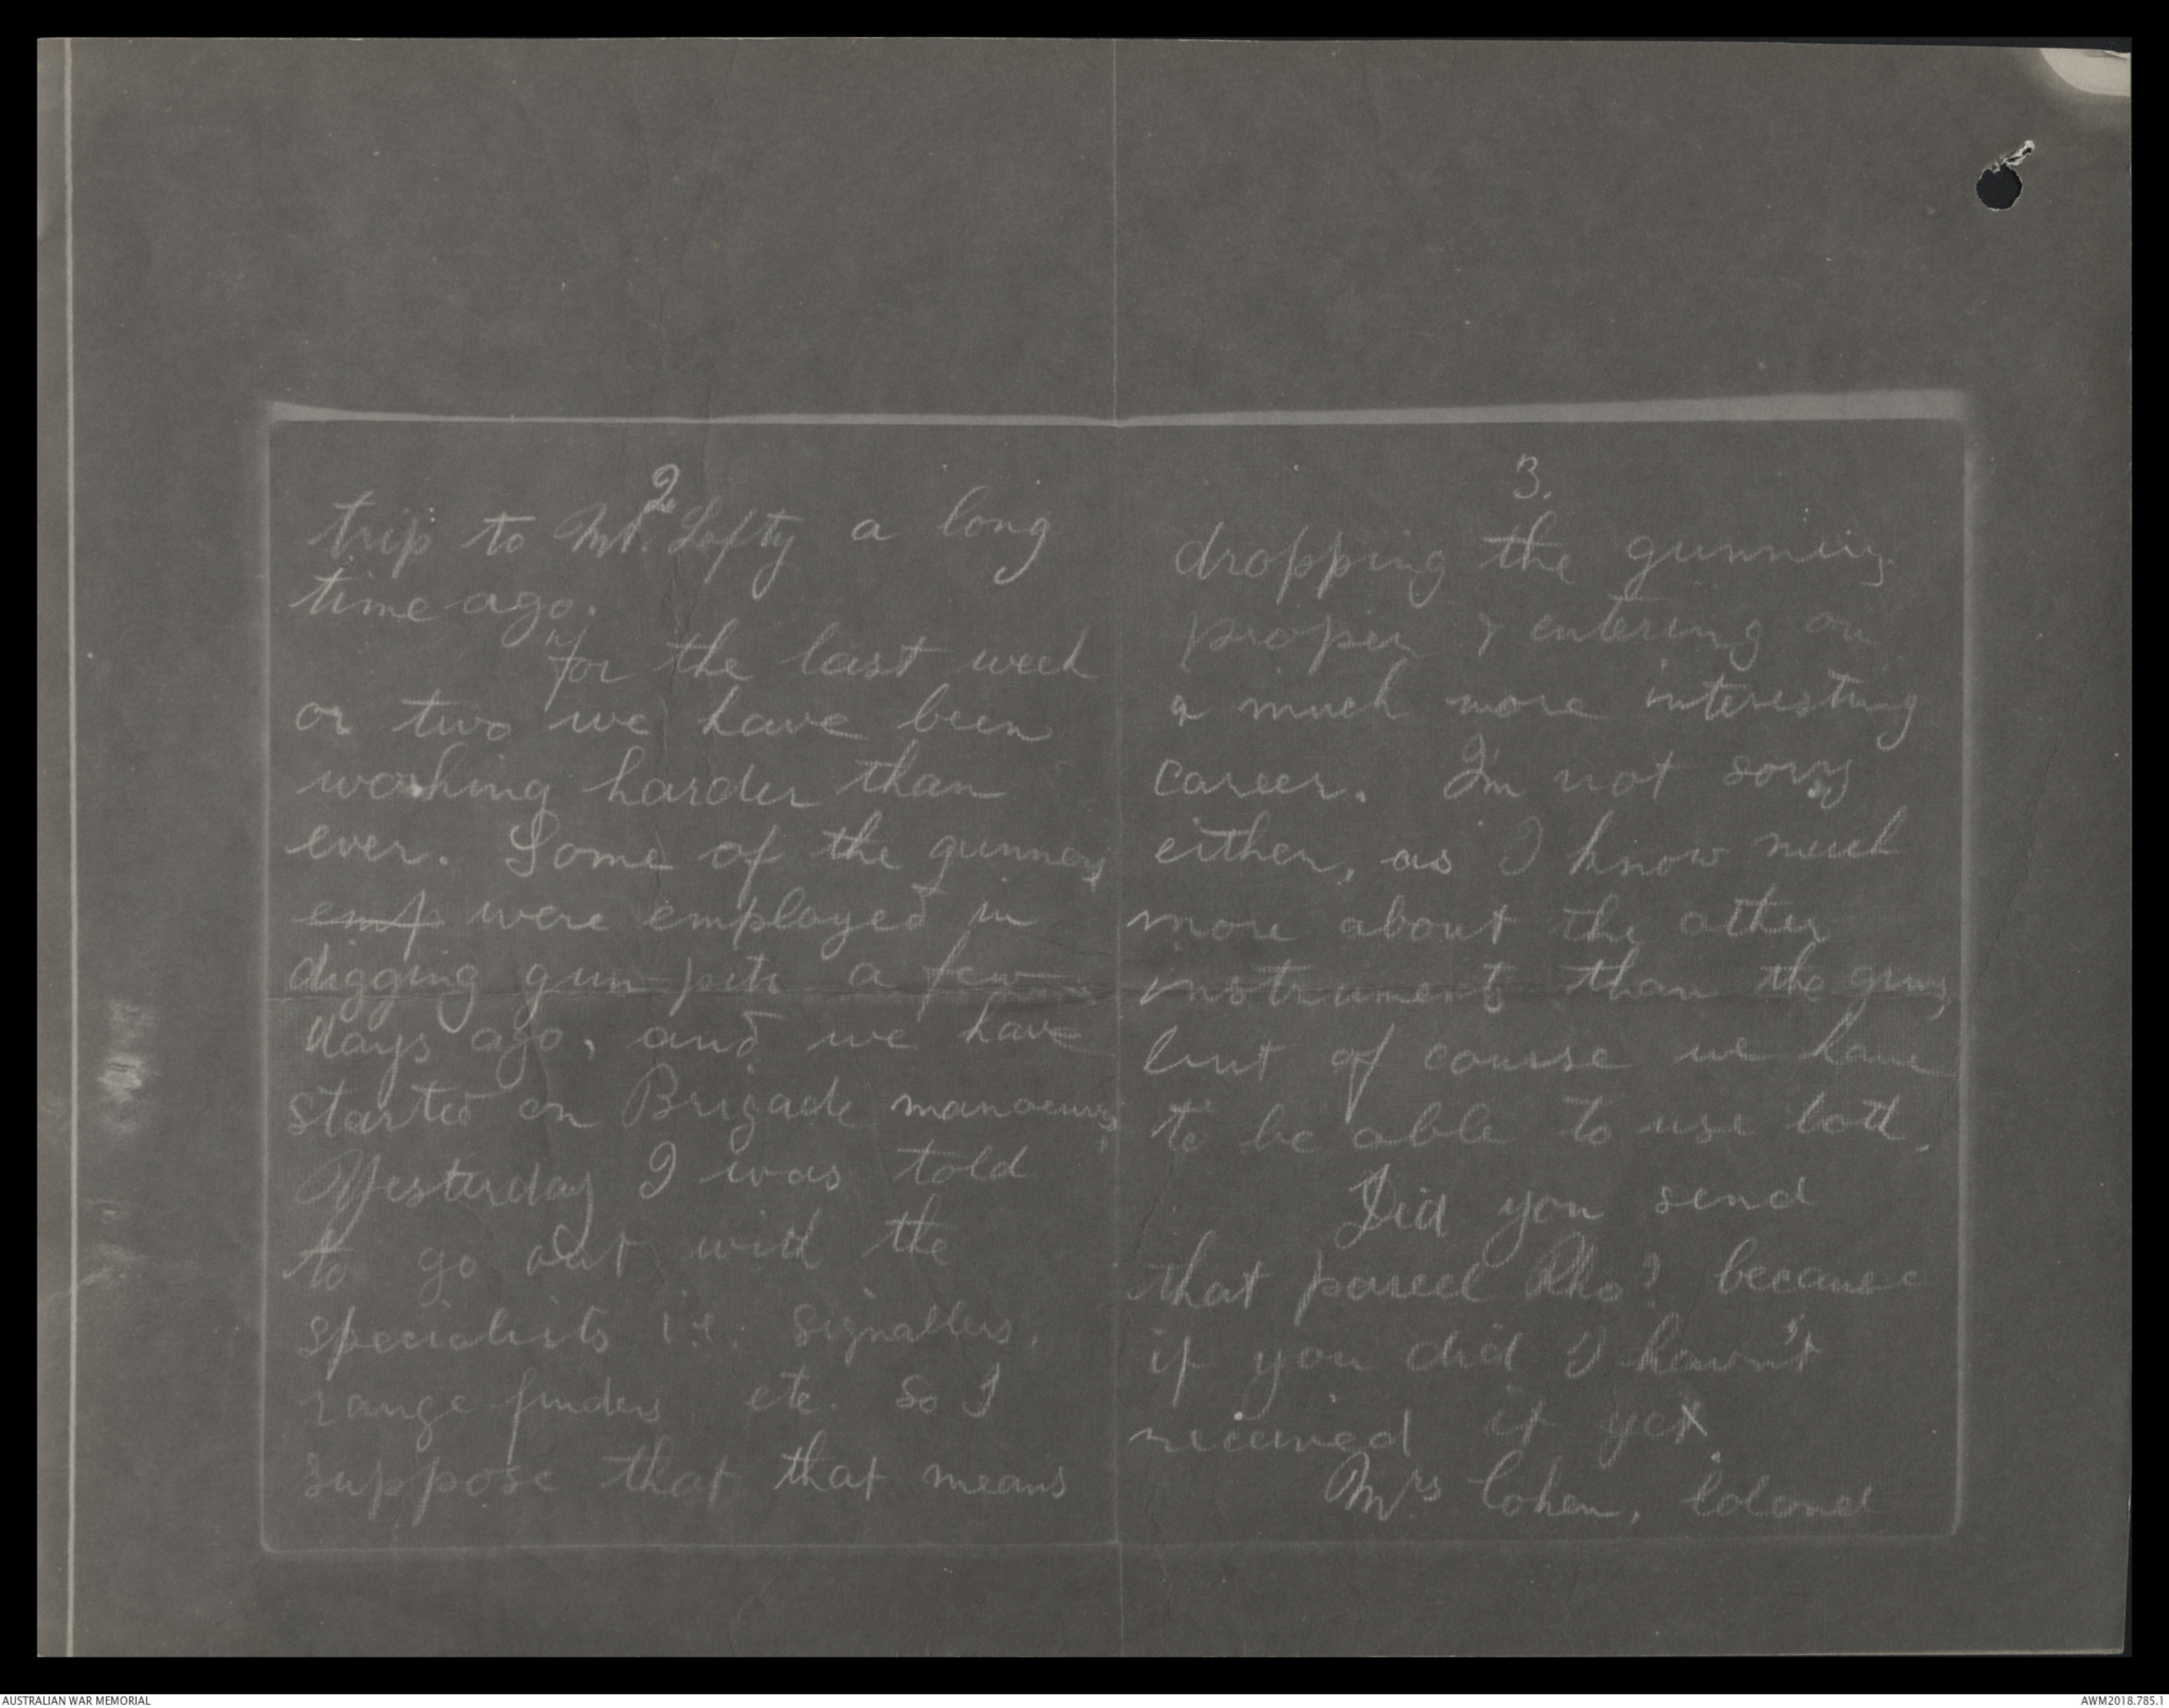 2
trip to Mt. Lofty a long
time ago.
For the last week
or two we have been
working harder than
ever. Some of the gunners
emp were employed in
digging gun-pits a few
days ago, and we have
started on Brigade manoeuvres.
Yesterday I was told
to go out with the
specialists i.e. signallers,
range finders etc. so I
suppose that that means
3.
dropping the gunnery
proper & entering on
a much more interesting
career. I'm not sorry
either, as I know much
more about the other
instruments than the guns,
but of course we have
to be able to use both.
Did you send
that parcel Rho? because
if you did I havn't
received it yet.
Mrs Cohen, Colonel
AUSTRALIAN WAR MEMORIAL
AWM2018.785.1